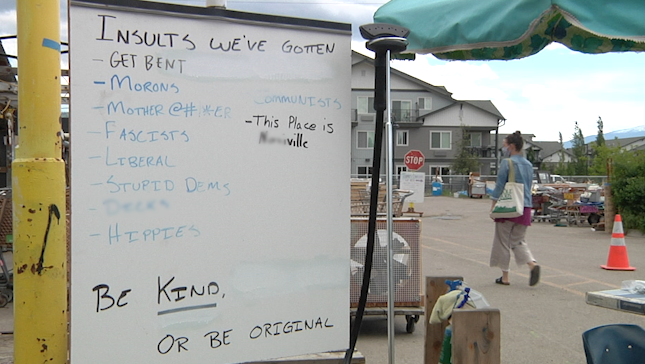 Insults we've gotten
- Get Bent
- Morons
- Mother @#,*-er
- Fascists
- Liberal
- Stupid Dems
-
- Hippies
Communists
- This Place is
ville
Be Kind,
or be original
STOP